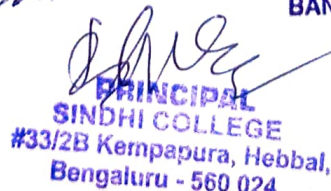 BAN
PRINCIPAL
SINDHI COLLEGE
#33/2B Kempapura, Hebbal,
Bengaluru - 560 024